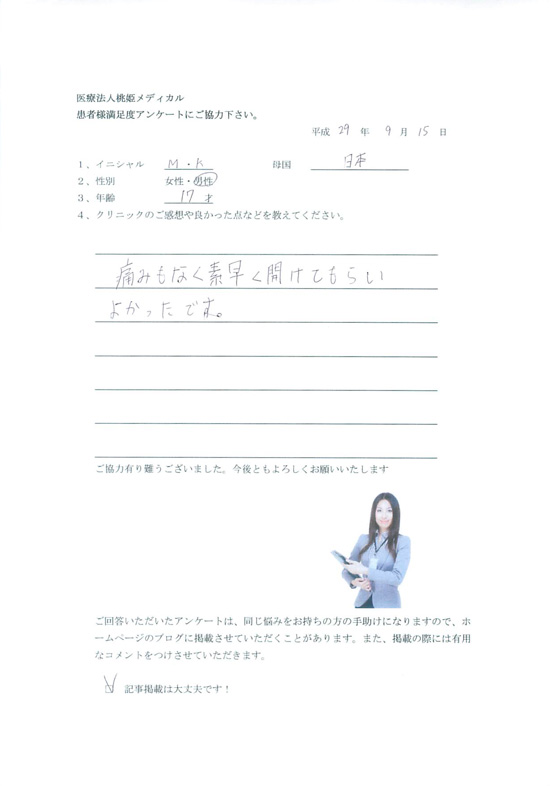 医療法人桃姫メディカル
患者様満足度アンケートにご協力下さい。
平成 29 年 9 月 15 日
1、イニシャル M・K 母国 日本
2、性別 女性・男性
3、年齢 17 才
4、クリニックのご感想や良かった点などを教えてください。
痛みもなく素早く開けてもらい
よかったです。
ご協力有り難うございました。今後ともよろしくお願いいたします
ご回答いただいたアンケートは、同じ悩みをお持ちの方の手助けになりますので、ホ
ームページのブログに掲載させていただくことがあります。また、掲載の際には有用
なコメントをつけさせていただきます。
記事掲載は大丈夫です！